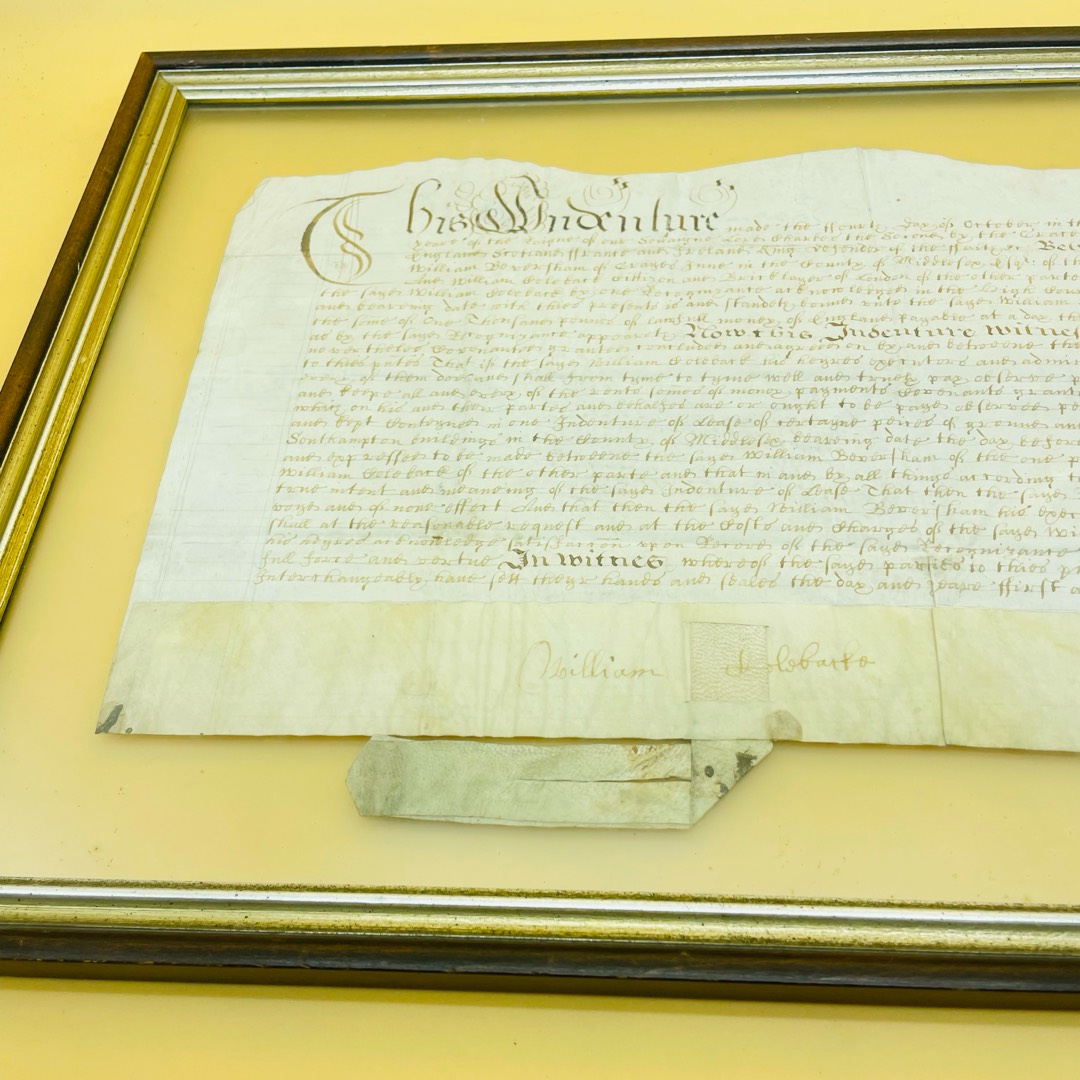 This Indenture made the ffourth day of October in th
yeare of the Raigne of our Soveraigne Lord Charles the Second by the Grace
England Scotland ffrance and Ireland King Defender of the ffaith &c Betw
William Beversham of Grayes Inne in the County of Middlesex Esqr of th
And William Colebacke Citizen and Bricklayer of London of the other parte
the sayd William Colebacke by one Recognizance acknowledged in the
and bearing date with these presents is and standeth bound unto the sayd William
the some of One Thousand pound of lawfull money of England payable at a day
as by the sayd Recognizance appeareth Now this Indenture witnes
neverthelesse Covenanted graunted concluded and agreed on by and betweene the
to theis presents That if the sayd William Colebacke his heyres executors and admin
every of them doe and shall from tyme to tyme well and truely pay observe p
and keepe all and every of the rents somes of money payments Covenants graunt
which on his and their partes and behalfes are or ought to be payd observed per
and kept conteyned in one Indenture of Lease of certayne peices of ground and
Southampton buildings in the County of Middlesex bearing date the day before
and expressed to be made betweene the sayd William Beversham of the one p
William Colebacke of the other parte and that in and by all things according t
true intent and meaneing of the sayd Indenture of Lease That then the sayd
voyd and of none effect And that then the sayd William Beversham his exec
shall at the reasonable request and at the Costs and Charges of the sayd Wi
his heyres acknowledge satisfaction upon Record of the sayd Recognizance
full force and vertue In witnes whereof the sayd parties to theis p
Interchangeably have sett theyr hands and seales the day and yeare ffirst a
William Colebacke